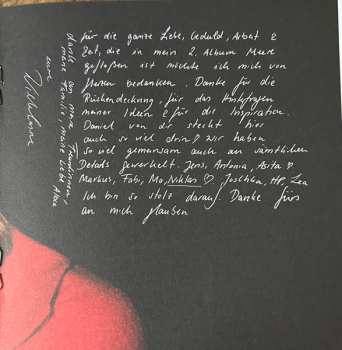 für die ganze Liebe, Geduld, Arbeit &
Zeit, die in mein 2. Album Meere
geflossen ist möchte ich mich von
Herzen bedanken. Danke für die
Rückendeckung, für das Hinterfragen
meiner Ideen & für die Inspiration.
Daniel von dir steckt hier
auch so viel drin & wir haben
so viel gemeinsam auch an sämtlichen
Details gewerkelt. Jens, Antonia, Anita ♡
Markus, Fabi, Mo, Niklas ♡, Joschka, HP, Lea
Ich bin so stolz darauf. Danke fürs
an mich glauben
danke an meine Freundinnen,
meine Familie, meine liebe
eure